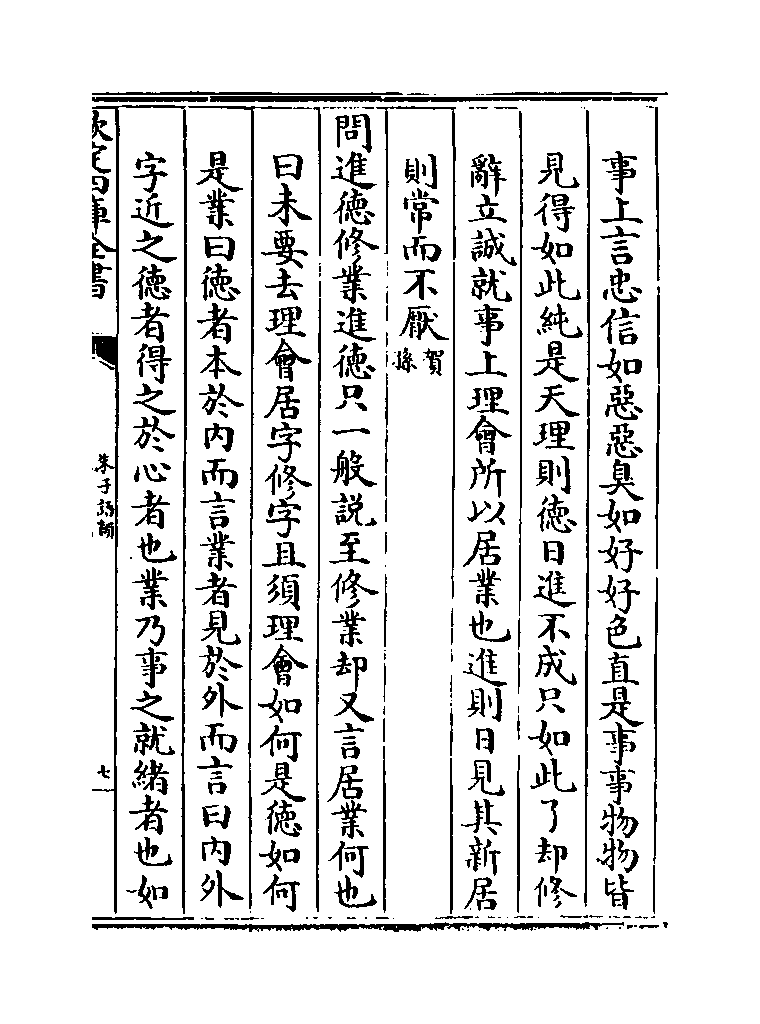 事上言忠信如惡惡臭如好好色直是事事物物皆
見得如此純是天理則德日進不成只如此了却修
辭立誠就事上理會所以居業也進則日見其新居
則常而不厭賀孫
問進德修業進德只一般說至修業却又言居業何也
曰未要去理會居字修字且須理會如何是德如何
是業曰德者本於内而言業者見於外而言曰内外
字近之德者得之於心者也業乃事之就緒者也如
欽定四庫全書
朱子語類
七